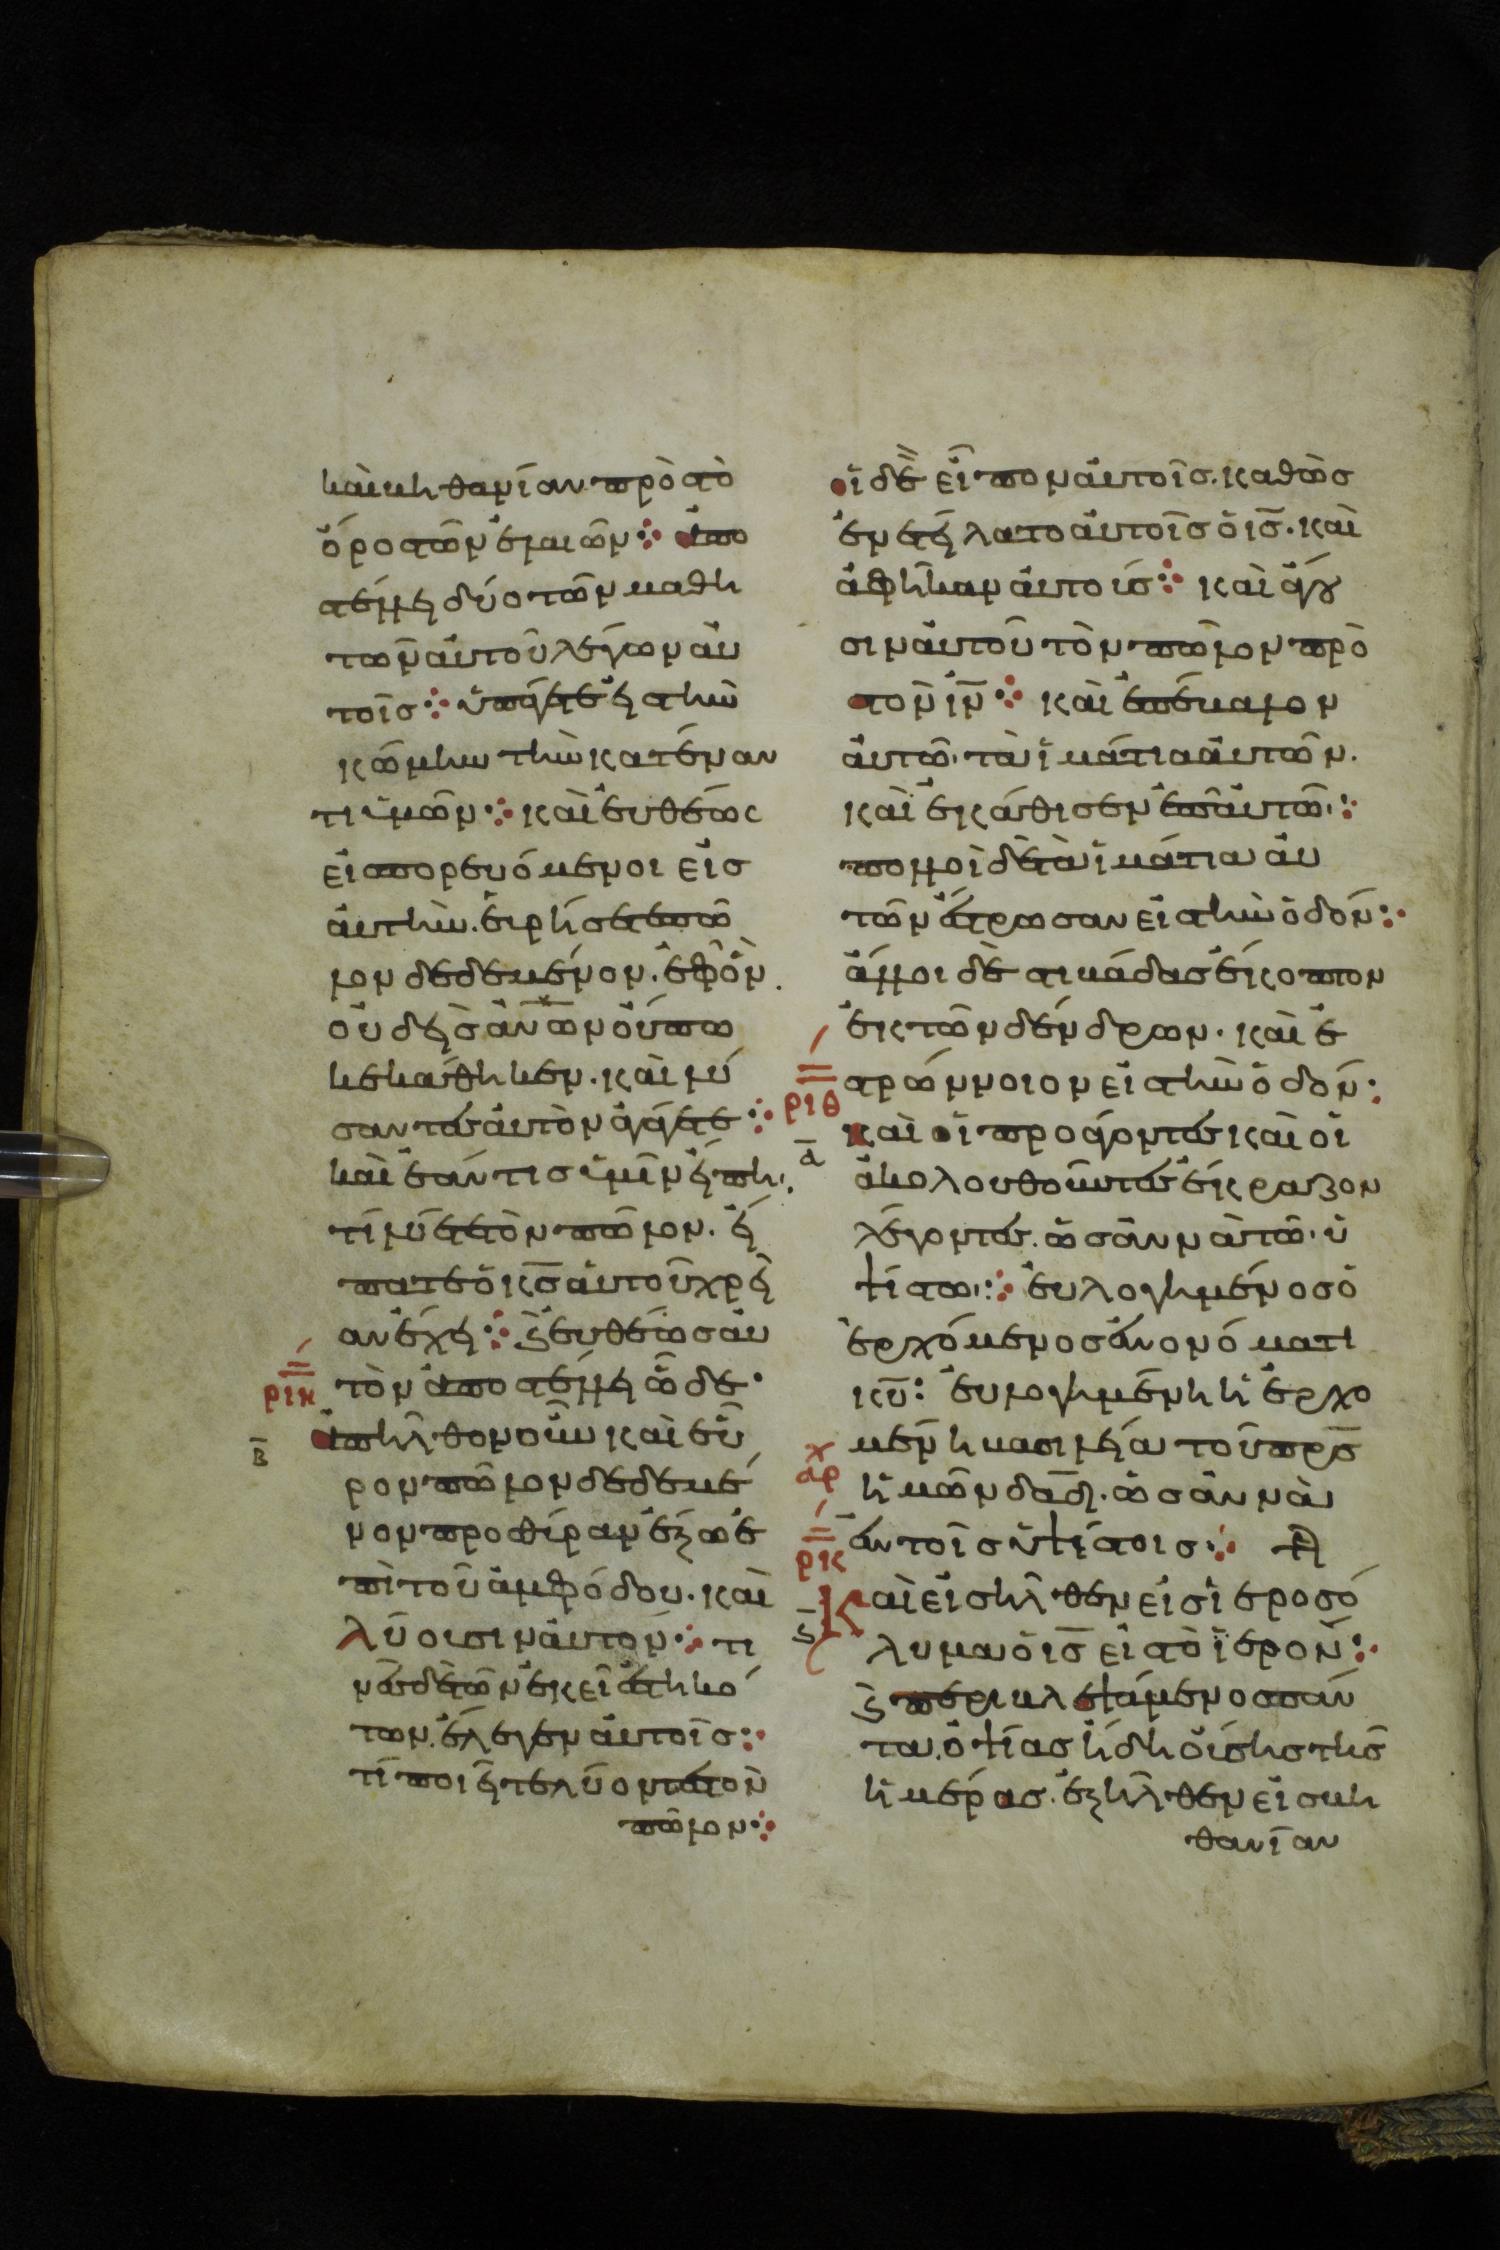 καὶ βηθανίαν πρὸς τὸ
ὄρος τῶν ἐλαιῶν ⁘ ἀπο
στέλλει δύο τῶν μαθη
τῶν αὐτοῦ λέγων αὐ
τοῖς ⁘ ὑπάγετε εἰς τὴν
κώμην τὴν κατέναν
τι ὑμῶν ⁘ καὶ εὐθέως
εἰσπορευόμενοι εἰς
αὐτὴν. εὑρήσετε πῶ
λον δεδεμένον. ἐφ' ὃν
οὐδεὶς ἀν̅ω̅ν οὔπω
κεκάθηκεν. καὶ λύ
σαντες αὐτὸν ἀγάγετε ⁘
καὶ ἐάν τις ὑμῖν εἴπη.
τί λύετε τὸν πῶλον. εἴ
πατε ὁ κ̅σ̅ αὐτοῦ χρεί
αν ἔχει ⁘ ϗ εὐθέως αὐ
ριη τὸν ἀποστέλλει ὧδε·
β ἀπῆλθον οὖν καὶ εὗ
ρον πῶλον δεδεμέ
νον προς θύραν ἔξω ἐ
πὶ τοῦ ἀμφόδου. καὶ
λύουσιν αὐτόν ⁘ τι
νὲς δὲ τῶν ἐκεῖ ἑστηκό
των. ἔλεγεν αὐτοῖς ⁘
τί ποιεῖτε λύοντες τὸν
πῶλον ⁘
οἱ δὲ εἶπον αὐτοῖς. καθὼς
ἐνετείλατο αὐτοῖς ὁ ι̅σ̅. καὶ
ἀφῆκαν αὐτούς ⁘ καὶ ἄγου
σιν αὐτοῦ τὸν πῶλον πρὸς
τον ι̅ν̅ ⁘ καὶ ἐπέβαλον
αὐτῶ. τὰ ἱμάτια αὐτῶν.
καὶ ἐκάθισεν ἐπ' αὐτῶ ⁘
πολλοὶ δὲ τὰ ἱμάτια αὐ
τῶν ἔστρωσαν εἰς τὴν ὁδόν ⁘
ἄλλοι δὲ στιβάδας ἔκοπτον
ἐκ τῶν δένδρων. καὶ ἐ
στρώννοιον εἰς τὴν ὁδόν ⁘
ριθ α καὶ οἱ προάγοντες καὶ οἱ
ἀκολουθοῦντες ἔκραζον
λέγοντες. ὡσαννὰ τῶ ὑ
ψίστω ⁘ εὐλογημένος ὁ
ἐρχόμενος ἐν ὀνόματι
κ̅υ̅ : εὐλογημένη ἡ ἐρχο
μένη βασιλεία τοῦ π̅ρ̅σ̅
ἡμῶν δ̅α̅δ̅. ὡσαννὰ
ἐν τοῖς ὑψίστοις ⁘
ϛ καὶ εἰσῆλθεν εἰς ἱεροσό
λυμα ὁ ι̅σ̅ εἰς τὸ ἱερόν ⁘
ϗ περιβλεψάμενος πάν
τα. ὀψίας ἤδη οὔσης τῆς
ἡμέρας. ἐξῆλθεν εἰς βη
θανίαν